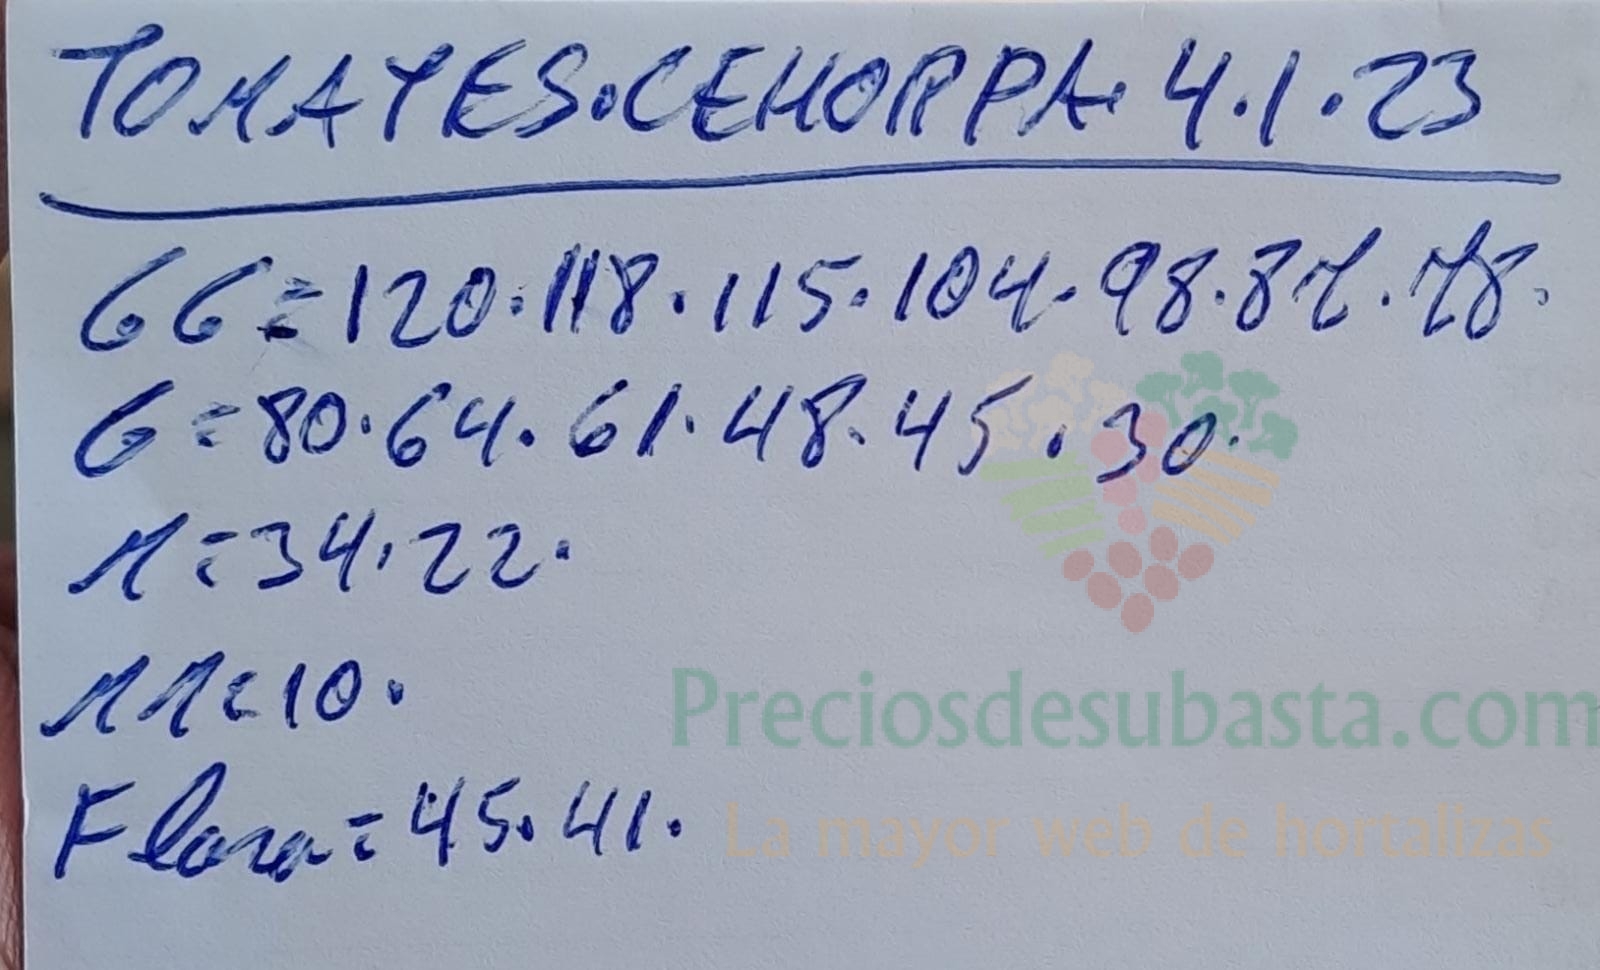 TOMATES.CEHORPA. 4.1.23
GG=120.118.115.104.98.87.78.
G=80.64.61.48.45.30.
M=34.22.
MM=10.
Flora=45.41.
Preciosdesubasta.com
La mayor web de hortalizas